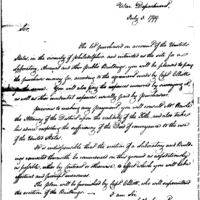 War Department,
July 3. 1799
Sir,
The lot purchased on account of the United
States, in the vicinity of Philadelphia and intended as the site for a
Laboratory, Arsenal and other public Buildings, you will be pleased to pay
the purchase money for, according to the agreement made by Capt. Elliott
the owner. You will also pay the expence incurred by conveying it, as
well as other incidental expences usually paid by purchasers.
Previous to making any payment, you will consult Mr. Rawle
the Attorney of the District upon the validity of the title, and also take
his advice respecting the sufficiency of the Deed of conveyance to the use
of the United States.
It is indispensible that the erection of a Laboratory and Build-
ings connected therewith be commenced on this ground as expeditiously
as possible, either by contract or otherwise, to effect which you will take
effectual and prompt measures.
The plan will be furnished by Capt. Elliott, who will superintend
the erection of the Buildings.
I am Sir,